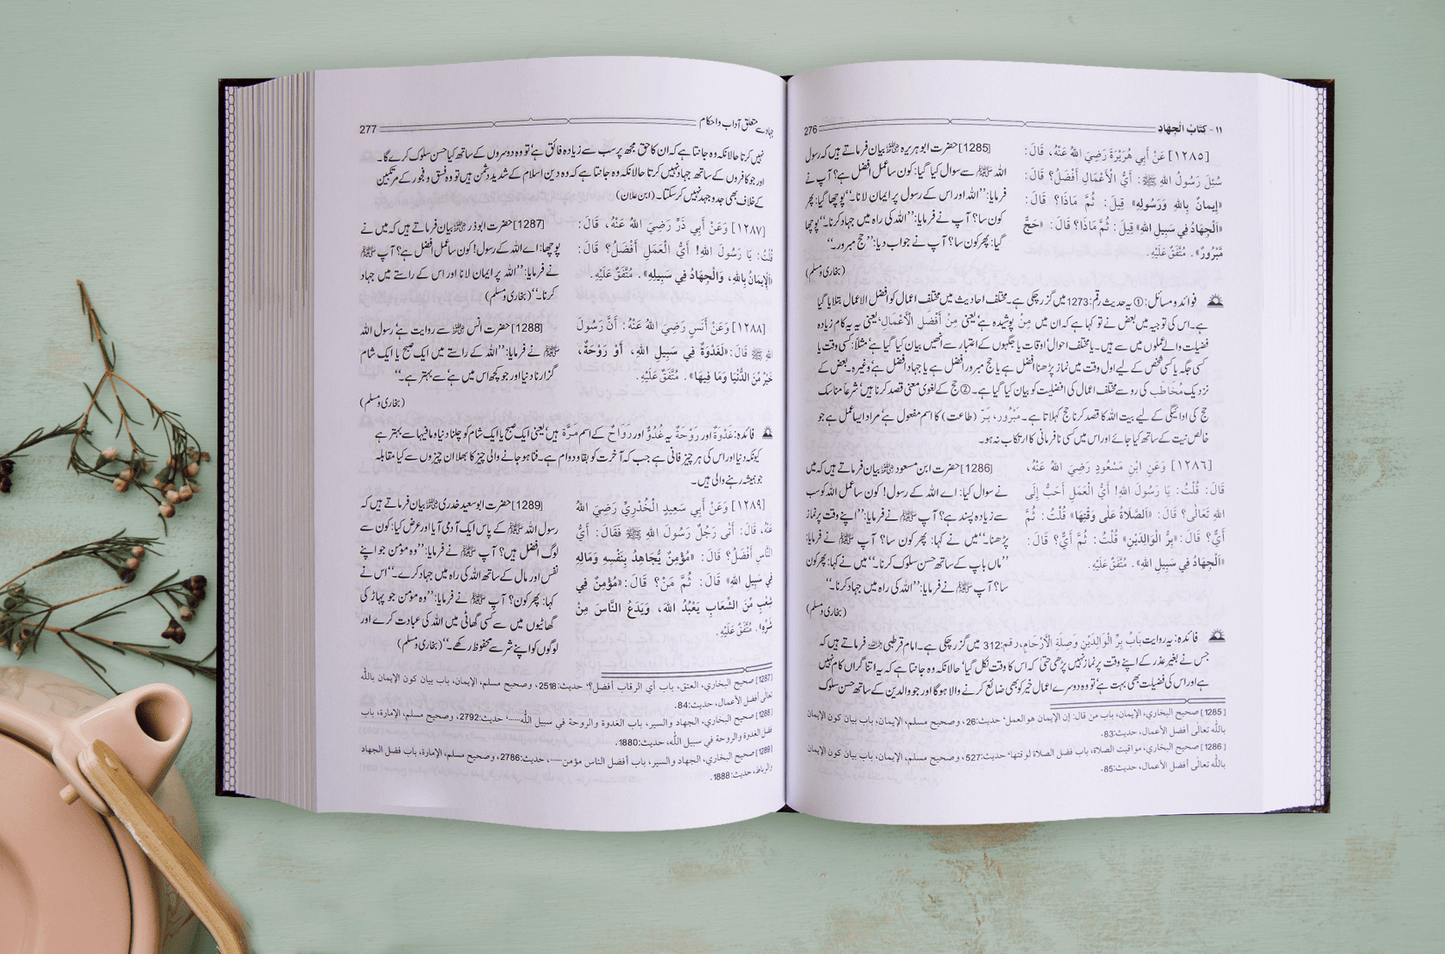 ۱۱ - كتاب الجهاد
276
[١٢٨٥] عَنْ أَبِي هُرَيْرَةَ رَضِيَ اللهُ عَنْهُ، قَالَ:
سُئِلَ رَسُولُ اللهِ ﷺ: أَيُّ الْأَعْمَالِ أَفْضَلُ؟ قَالَ:
«إِيمَانٌ بِاللهِ وَرَسُولِهِ» قِيلَ: ثُمَّ مَاذَا؟ قَالَ:
«اَلْجِهَادُ فِي سَبِيلِ اللهِ» قِيلَ: ثُمَّ مَاذَا؟ قَالَ: «حَجٌّ
مَّبْرُورٌ». مُتَّفَقٌ عَلَيْهِ.
[1285] حضرت ابوہریرہ ؓ بیان فرماتے ہیں کہ رسول
اللہ ﷺ سے سوال کیا گیا: کون سا عمل افضل ہے؟ آپ نے
فرمایا: ''اللہ اور اس کے رسول پر ایمان لانا۔'' پوچھا گیا: پھر
کون سا؟ آپ نے فرمایا: ''اللہ کی راہ میں جہاد کرنا۔'' پوچھا
گیا: پھر کون سا؟ آپ نے جواب دیا: ''حج مبرور۔''
(بخاری و مسلم)
فوائد و مسائل: ① یہ حدیث رقم: 1273 میں گزر چکی ہے۔ مختلف احادیث میں مختلف اعمال کو افضل الاعمال بتلایا گیا
ہے۔ اس کی توجیہ میں بعض نے تو کہا ہے کہ ان میں مِنْ پوشیدہ ہے یعنی مِنْ أَفْضَلِ الْأَعْمَالِ، یعنی یہ یہ کام زیادہ
فضیلت والے عملوں میں سے ہیں۔ یا مختلف احوال، اوقات یا جگہوں کے اعتبار سے انھیں بیان کیا گیا ہے، مثلاً: کسی وقت یا
کسی جگہ یا کسی شخص کے لیے اول وقت میں نماز پڑھنا افضل ہے یا حج مبرور افضل ہے یا جہاد افضل ہے، وغیرہ۔ بعض کے
نزدیک مُخَاطَب کی رو سے مختلف اعمال کی افضلیت کو بیان کیا گیا ہے۔ ② حج کے لغوی معنی قصد کرنا ہیں، شرعاً مناسک
حج کی ادائیگی کے لیے بیت اللہ کا قصد کرنا حج کہلاتا ہے۔ مَبْرُور، بَرّ (طاعت) کا اسم مفعول ہے، مراد ایسا عمل ہے جو
خالص نیت کے ساتھ کیا جائے اور اس میں کسی نافرمانی کا ارتکاب نہ ہو۔
[١٢٨٦] وَعَنِ ابْنِ مَسْعُودٍ رَضِيَ اللهُ عَنْهُ،
قَالَ: قُلْتُ: يَا رَسُولَ اللهِ! أَيُّ الْعَمَلِ أَحَبُّ إِلَى
اللهِ تَعَالَى؟ قَالَ: «اَلصَّلَاةُ عَلَى وَقْتِهَا» قُلْتُ: ثُمَّ
أَيٌّ؟ قَالَ: «بِرُّ الْوَالِدَيْنِ» قُلْتُ: ثُمَّ أَيٌّ؟ قَالَ:
«اَلْجِهَادُ فِي سَبِيلِ اللهِ». مُتَّفَقٌ عَلَيْهِ.
[1286] حضرت ابن مسعود ؓ بیان فرماتے ہیں کہ میں
نے سوال کیا: اے اللہ کے رسول! کون سا عمل اللہ کو سب
سے زیادہ پسند ہے؟ آپ ﷺ نے فرمایا: ''اپنے وقت پر نماز
پڑھنا۔'' میں نے کہا: پھر کون سا؟ آپ نے فرمایا:
''ماں باپ کے ساتھ حسن سلوک کرنا۔'' میں نے کہا: پھر کون
سا؟ آپ ﷺ نے فرمایا: ''اللہ کی راہ میں جہاد کرنا۔''
(بخاری و مسلم)
فائدہ: یہ روایت بابُ بِرِّ الْوَالِدَيْنِ وَصِلَةِ الْأَرْحَامِ، رقم: 312 میں گزر چکی ہے۔ امام قرطبی ؒ فرماتے ہیں کہ
جس نے بغیر عذر کے اپنے وقت پر نماز نہیں پڑھی حتیٰ کہ اس کا وقت نکل گیا، حالانکہ وہ جانتا ہے کہ یہ اتنا گراں کام نہیں
ہے اور اس کی فضیلت بھی بہت ہے، تو وہ دوسرے اعمال خیر کو بھی ضائع کرنے والا ہوگا اور جو والدین کے ساتھ حسن سلوک
[1285] صحيح البخاري، الإيمان، باب من قال: إن الإيمان هو العمل، حديث:26، وصحيح مسلم، الإيمان، باب بيان كون الإيمان
بالله تعالى أفضل الأعمال، حديث:83.
[1286] صحيح البخاري، مواقيت الصلاة، باب فضل الصلاة لوقتها، حديث:527، وصحيح مسلم، الإيمان، باب بيان كون الإيمان
بالله تعالى أفضل الأعمال، حديث:85.
جہاد سے متعلق آداب و احکام
277
نہیں کرتا حالانکہ وہ جانتا ہے کہ ان کا حق مجھ پر سب سے زیادہ فائق ہے، تو وہ دوسروں کے ساتھ کیا حسن سلوک کرے گا۔
اور جو کافروں کے ساتھ جہاد نہیں کرتا حالانکہ وہ جانتا ہے کہ وہ دین اسلام کے شدید دشمن ہیں تو وہ فسق و فجور کے مرتکبین
کے خلاف بھی جدوجہد نہیں کر سکتا۔ (ابن علان)
[١٢٨٧] وَعَنْ أَبِي ذَرٍّ رَضِيَ اللهُ عَنْهُ، قَالَ:
قُلْتُ: يَا رَسُولَ اللهِ! أَيُّ الْعَمَلِ أَفْضَلُ؟ قَالَ:
«اَلْإِيمَانُ بِاللهِ، وَالْجِهَادُ فِي سَبِيلِهِ». مُتَّفَقٌ عَلَيْهِ.
[1287] حضرت ابوذر ؓ بیان فرماتے ہیں کہ میں نے
پوچھا: اے اللہ کے رسول! کون سا عمل افضل ہے؟ آپ ﷺ
نے فرمایا: ''اللہ پر ایمان لانا اور اس کے راستے میں جہاد
کرنا۔'' (بخاری و مسلم)
[١٢٨٨] وَعَنْ أَنَسٍ رَضِيَ اللهُ عَنْهُ: أَنَّ رَسُولَ
اللهِ ﷺ قَالَ: «لَغَدْوَةٌ فِي سَبِيلِ اللهِ، أَوْ رَوْحَةٌ،
خَيْرٌ مِّنَ الدُّنْيَا وَمَا فِيهَا». مُتَّفَقٌ عَلَيْهِ.
[1288] حضرت انس ؓ سے روایت ہے، رسول اللہ
ﷺ نے فرمایا: ''اللہ کے راستے میں ایک صبح یا ایک شام
گزارنا دنیا اور جو کچھ اس میں ہے، سے بہتر ہے۔''
(بخاری و مسلم)
فائدہ: غَدْوَةٌ اور رَوْحَةٌ یہ غُدُوٌّ اور رَوَاحٌ کے اسم مَرَّة ہیں، یعنی ایک صبح یا ایک شام کو چلنا دنیا و مافیہا سے بہتر ہے
کیونکہ دنیا اور اس کی ہر چیز فانی ہے جب کہ آخرت کو بقا و دوام ہے۔ فنا ہو جانے والی چیز کا بھلا ان چیزوں سے کیا مقابلہ
جو ہمیشہ رہنے والی ہیں۔
[١٢٨٩] وَعَنْ أَبِي سَعِيدٍ الْخُدْرِيِّ رَضِيَ اللهُ
عَنْهُ، قَالَ: أَتَى رَجُلٌ رَسُولَ اللهِ ﷺ فَقَالَ: أَيُّ
النَّاسِ أَفْضَلُ؟ قَالَ: «مُؤْمِنٌ يُجَاهِدُ بِنَفْسِهِ وَمَالِهِ
فِي سَبِيلِ اللهِ» قَالَ: ثُمَّ مَنْ؟ قَالَ: «مُؤْمِنٌ فِي
شِعْبٍ مِّنَ الشِّعَابِ يَعْبُدُ اللهَ، وَيَدَعُ النَّاسَ مِنْ
شَرِّهِ». مُتَّفَقٌ عَلَيْهِ.
[1289] حضرت ابوسعید خدری ؓ بیان فرماتے ہیں کہ
رسول اللہ ﷺ کے پاس ایک آدمی آیا اور عرض کیا: کون سے
لوگ افضل ہیں؟ آپ ﷺ نے فرمایا: ''وہ مومن جو اپنے
نفس اور مال کے ساتھ اللہ کی راہ میں جہاد کرے۔'' اس نے
کہا: پھر کون؟ آپ ﷺ نے فرمایا: ''وہ مومن جو پہاڑ کی
گھاٹیوں میں سے کسی گھاٹی میں اللہ کی عبادت کرے اور
لوگوں کو اپنے شر سے محفوظ رکھے۔'' (بخاری و مسلم)
[1287] صحيح البخاري، العتق، باب أي الرقاب أفضل؟، حديث:2518، وصحيح مسلم، الإيمان، باب بيان كون الإيمان بالله
تعالى أفضل الأعمال، حديث:84.
[1288] صحيح البخاري، الجهاد والسير، باب الغدوة والروحة في سبيل الله......، حديث:2792، وصحيح مسلم، الإمارة، باب
فضل الغدوة والروحة في سبيل الله، حديث:1880.
[1289] صحيح البخاري، الجهاد والسير، باب أفضل الناس مؤمن......، حديث:2786، وصحيح مسلم، الإمارة، باب فضل الجهاد
والرباط، حديث:1888.